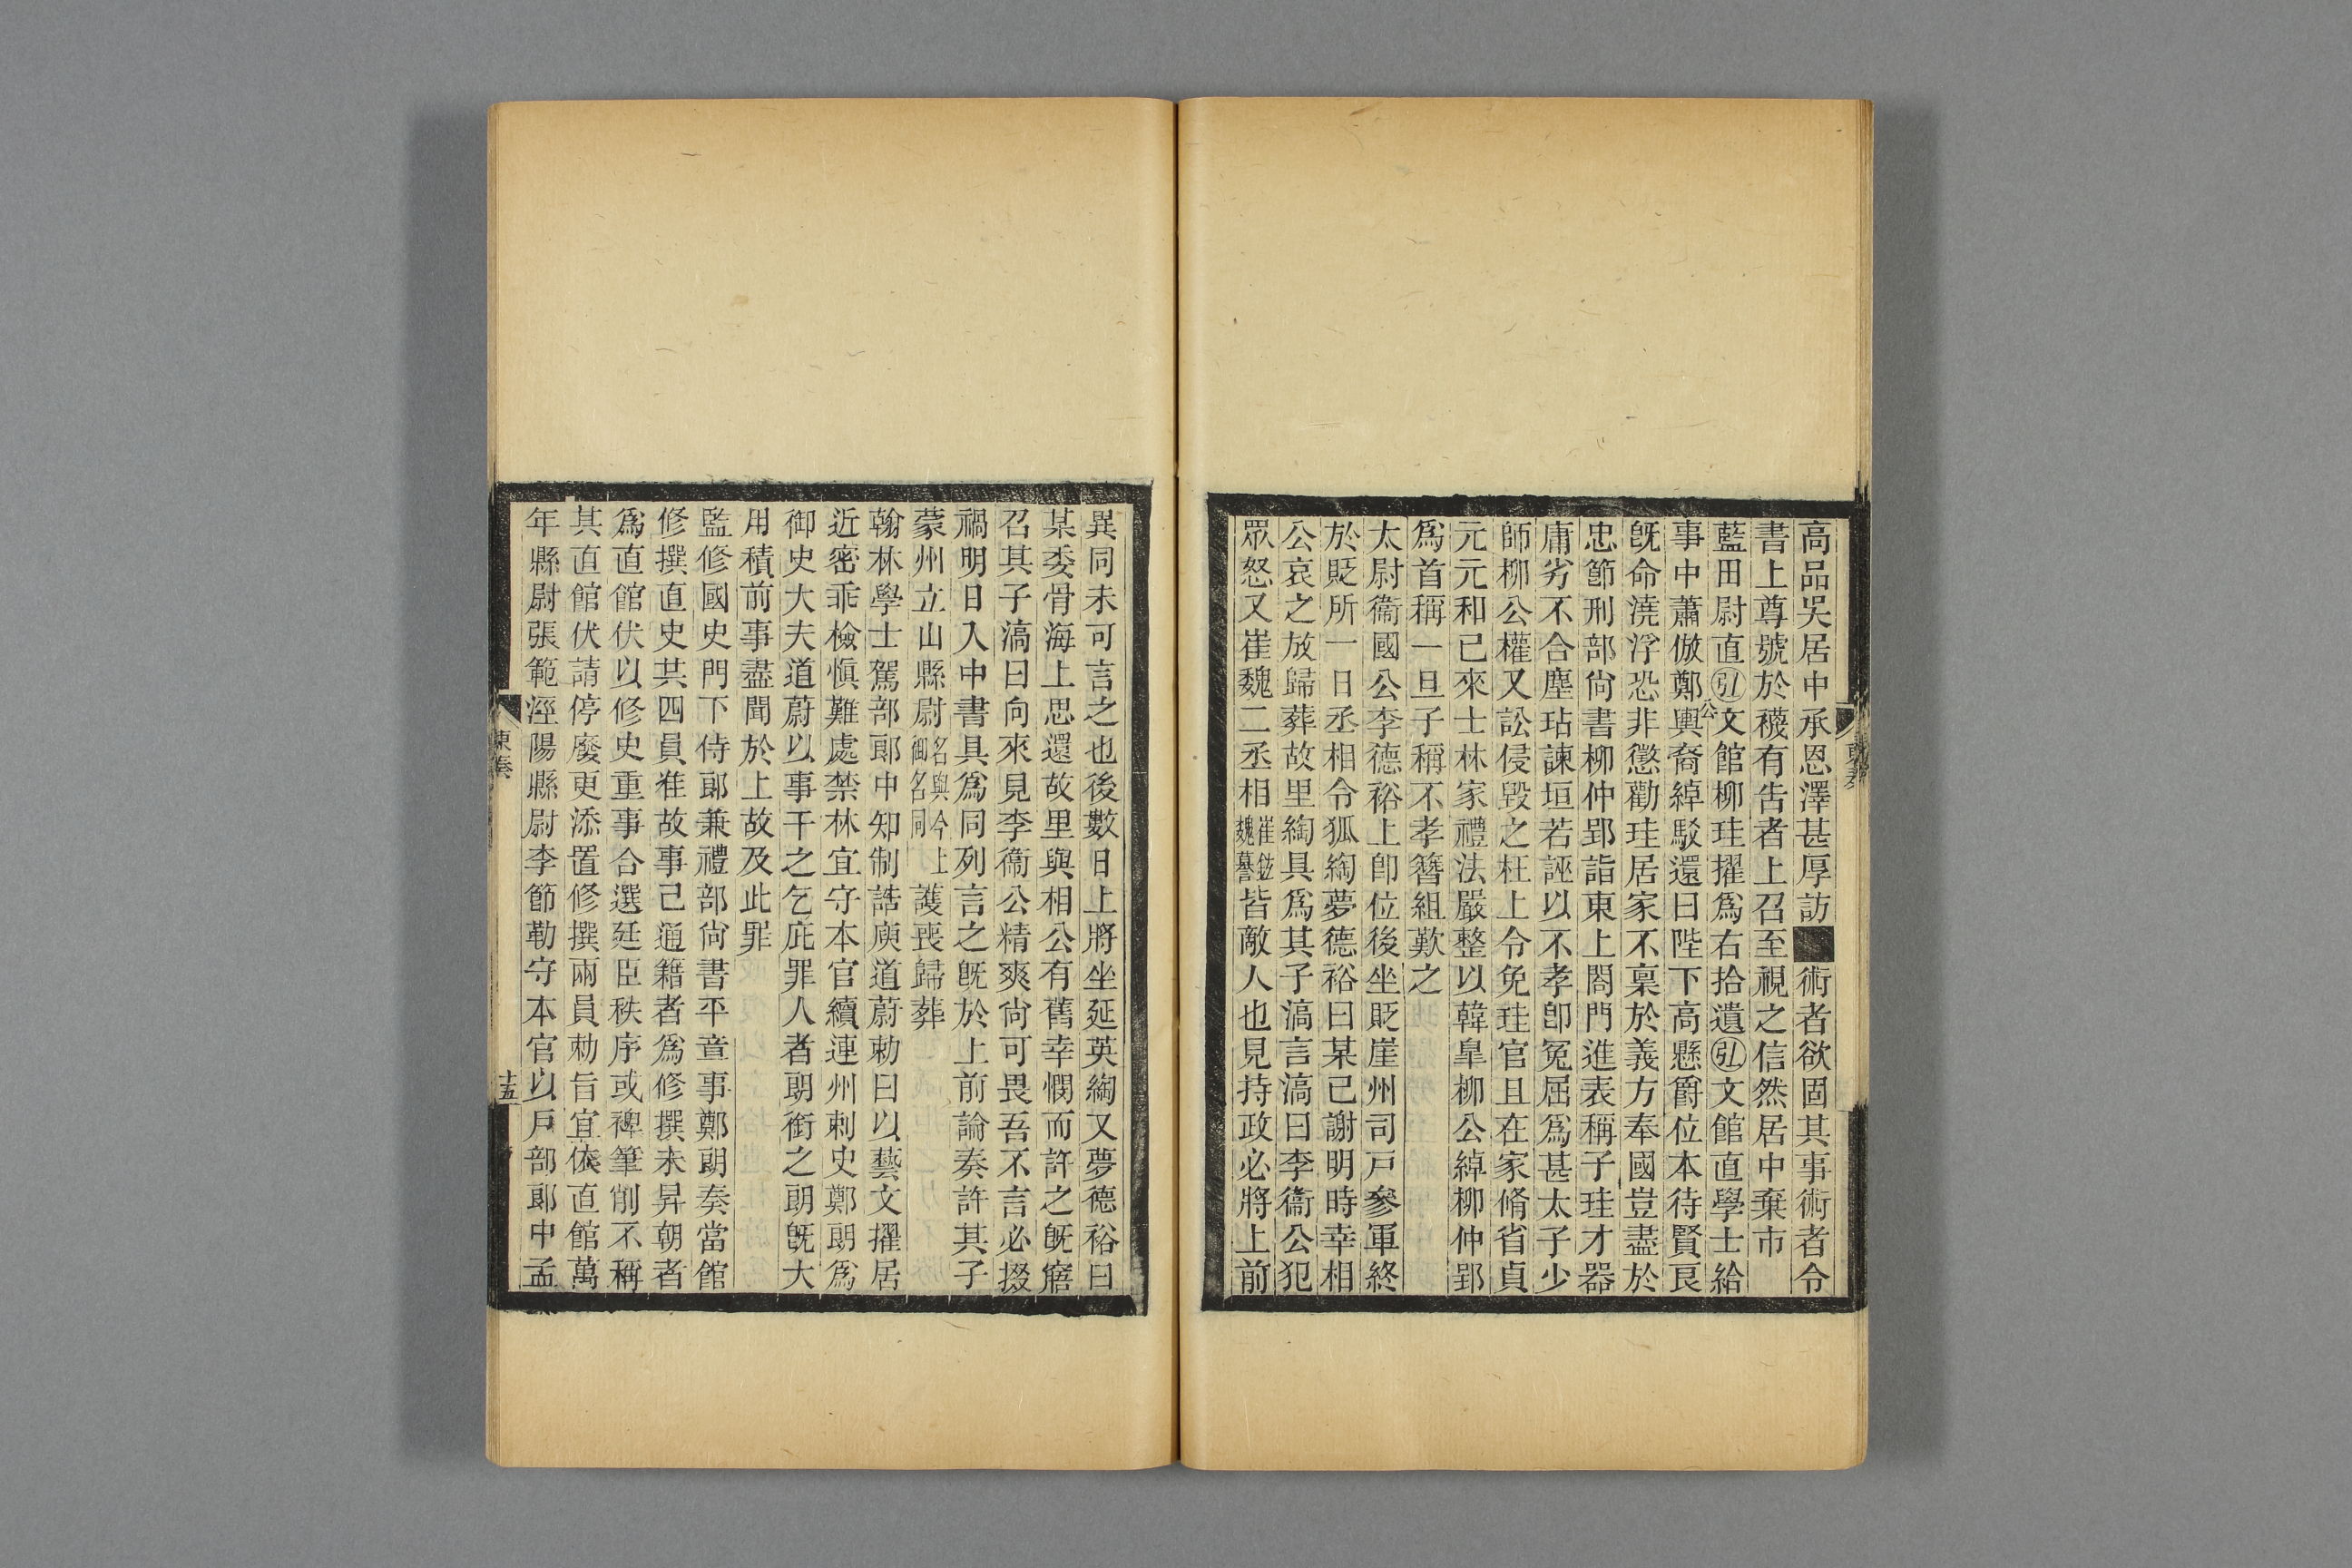 高品吳居中承恩澤甚厚訪■術者欲固其事術者令
書上尊號於襪有吿者上召至視之信然居中棄市
藍田尉直弘文館柳珪擢爲右拾遺弘文館直學士給
事中蕭倣鄭公輿裔綽駁還曰陛下高懸爵位本待賢良
旣命澆浮恐非懲勸珪居家不稟於義方奉國豈盡於
忠節刑部尙書柳仲郢詣東上閤門進表稱子珪才器
庸劣不合塵玷諫垣若誣以不孝卽冤屈爲甚太子少
師柳公權又訟侵毀之枉上令免珪官且在家脩省貞
元元和已來士林家禮法嚴整以韓臯柳公綽柳仲郢
爲首稱一旦子稱不孝簪組歎之
太尉衞國公李德裕上卽位後坐貶崖州司戸參軍終
於貶所一日丞相令狐綯夢德裕曰某已謝明時幸相
公哀之放歸葬故里綯具爲其子滈言滈曰李衞公犯
眾怒又崔魏二丞相崔鉉魏謩皆敵人也見持政必將上前
異同未可言之也後數日上將坐延英綯又夢德裕曰
某委骨海上思還故里與相公有舊幸憫而許之旣寤
召其子滈曰向來見李衞公精爽尙可畏吾不言必掇
禍明日入中書具爲同列言之旣於上前論奏許其子
蒙州立山縣尉名與今上御名同護喪歸葬
翰林學士駕部郎中知制誥庾道蔚勅曰以藝文擢居
近密乖檢愼難處禁林宜守本官續連州刺史鄭朗爲
御史大夫道蔚以事干之乞庇罪人者朗銜之朗旣大
用積前事盡聞於上故及此罪
監修國史門下侍郎兼禮部尙書平章事鄭朗奏當館
修撰直史共四員准故事已通籍者爲修撰未昇朝者
爲直館伏以修史重事合選廷臣秩序或裨筆削不稱
其直館伏請停廢更添置修撰兩員勅旨宜依直館萬
年縣尉張範涇陽縣尉李節勒守本官以戸部郎中孟
東奏
十五